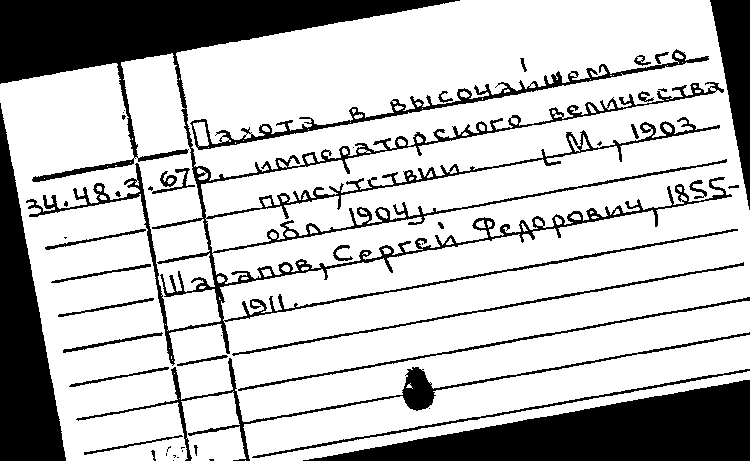 Пахота в высочайшем его
34.48.3.679. императорского величества
присутствии. М., 1903
обл. 1904].
Шарапов, Сергей Федорович, 1855-
1911.